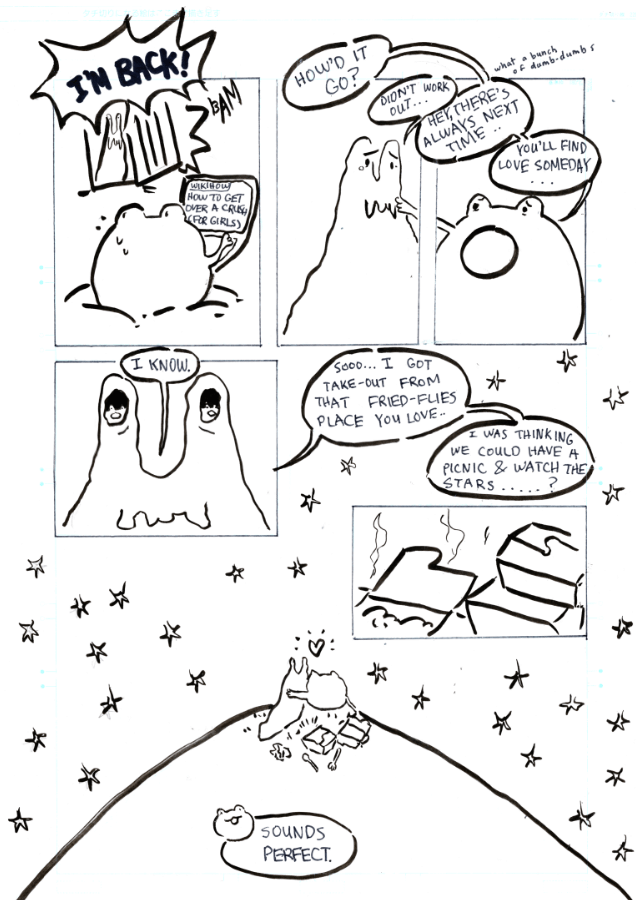 I'M BACK!
BAM
WIKIHOW
HOW TO GET
OVER A CRUSH
(FOR GIRLS)
HOW'D IT
GO?
DIDN'T WORK
OUT...
what a bunch
of dumb-dumbs
HEY, THERE'S
ALWAYS NEXT
TIME..
YOU'LL FIND
LOVE SOMEDAY
....
I KNOW.
SOOO... I GOT
TAKE-OUT FROM
THAT FRIED-FLIES
PLACE YOU LOVE..
I WAS THINKING
WE COULD HAVE A
PICNIC & WATCH THE
STARS.....?
SOUNDS
PERFECT.